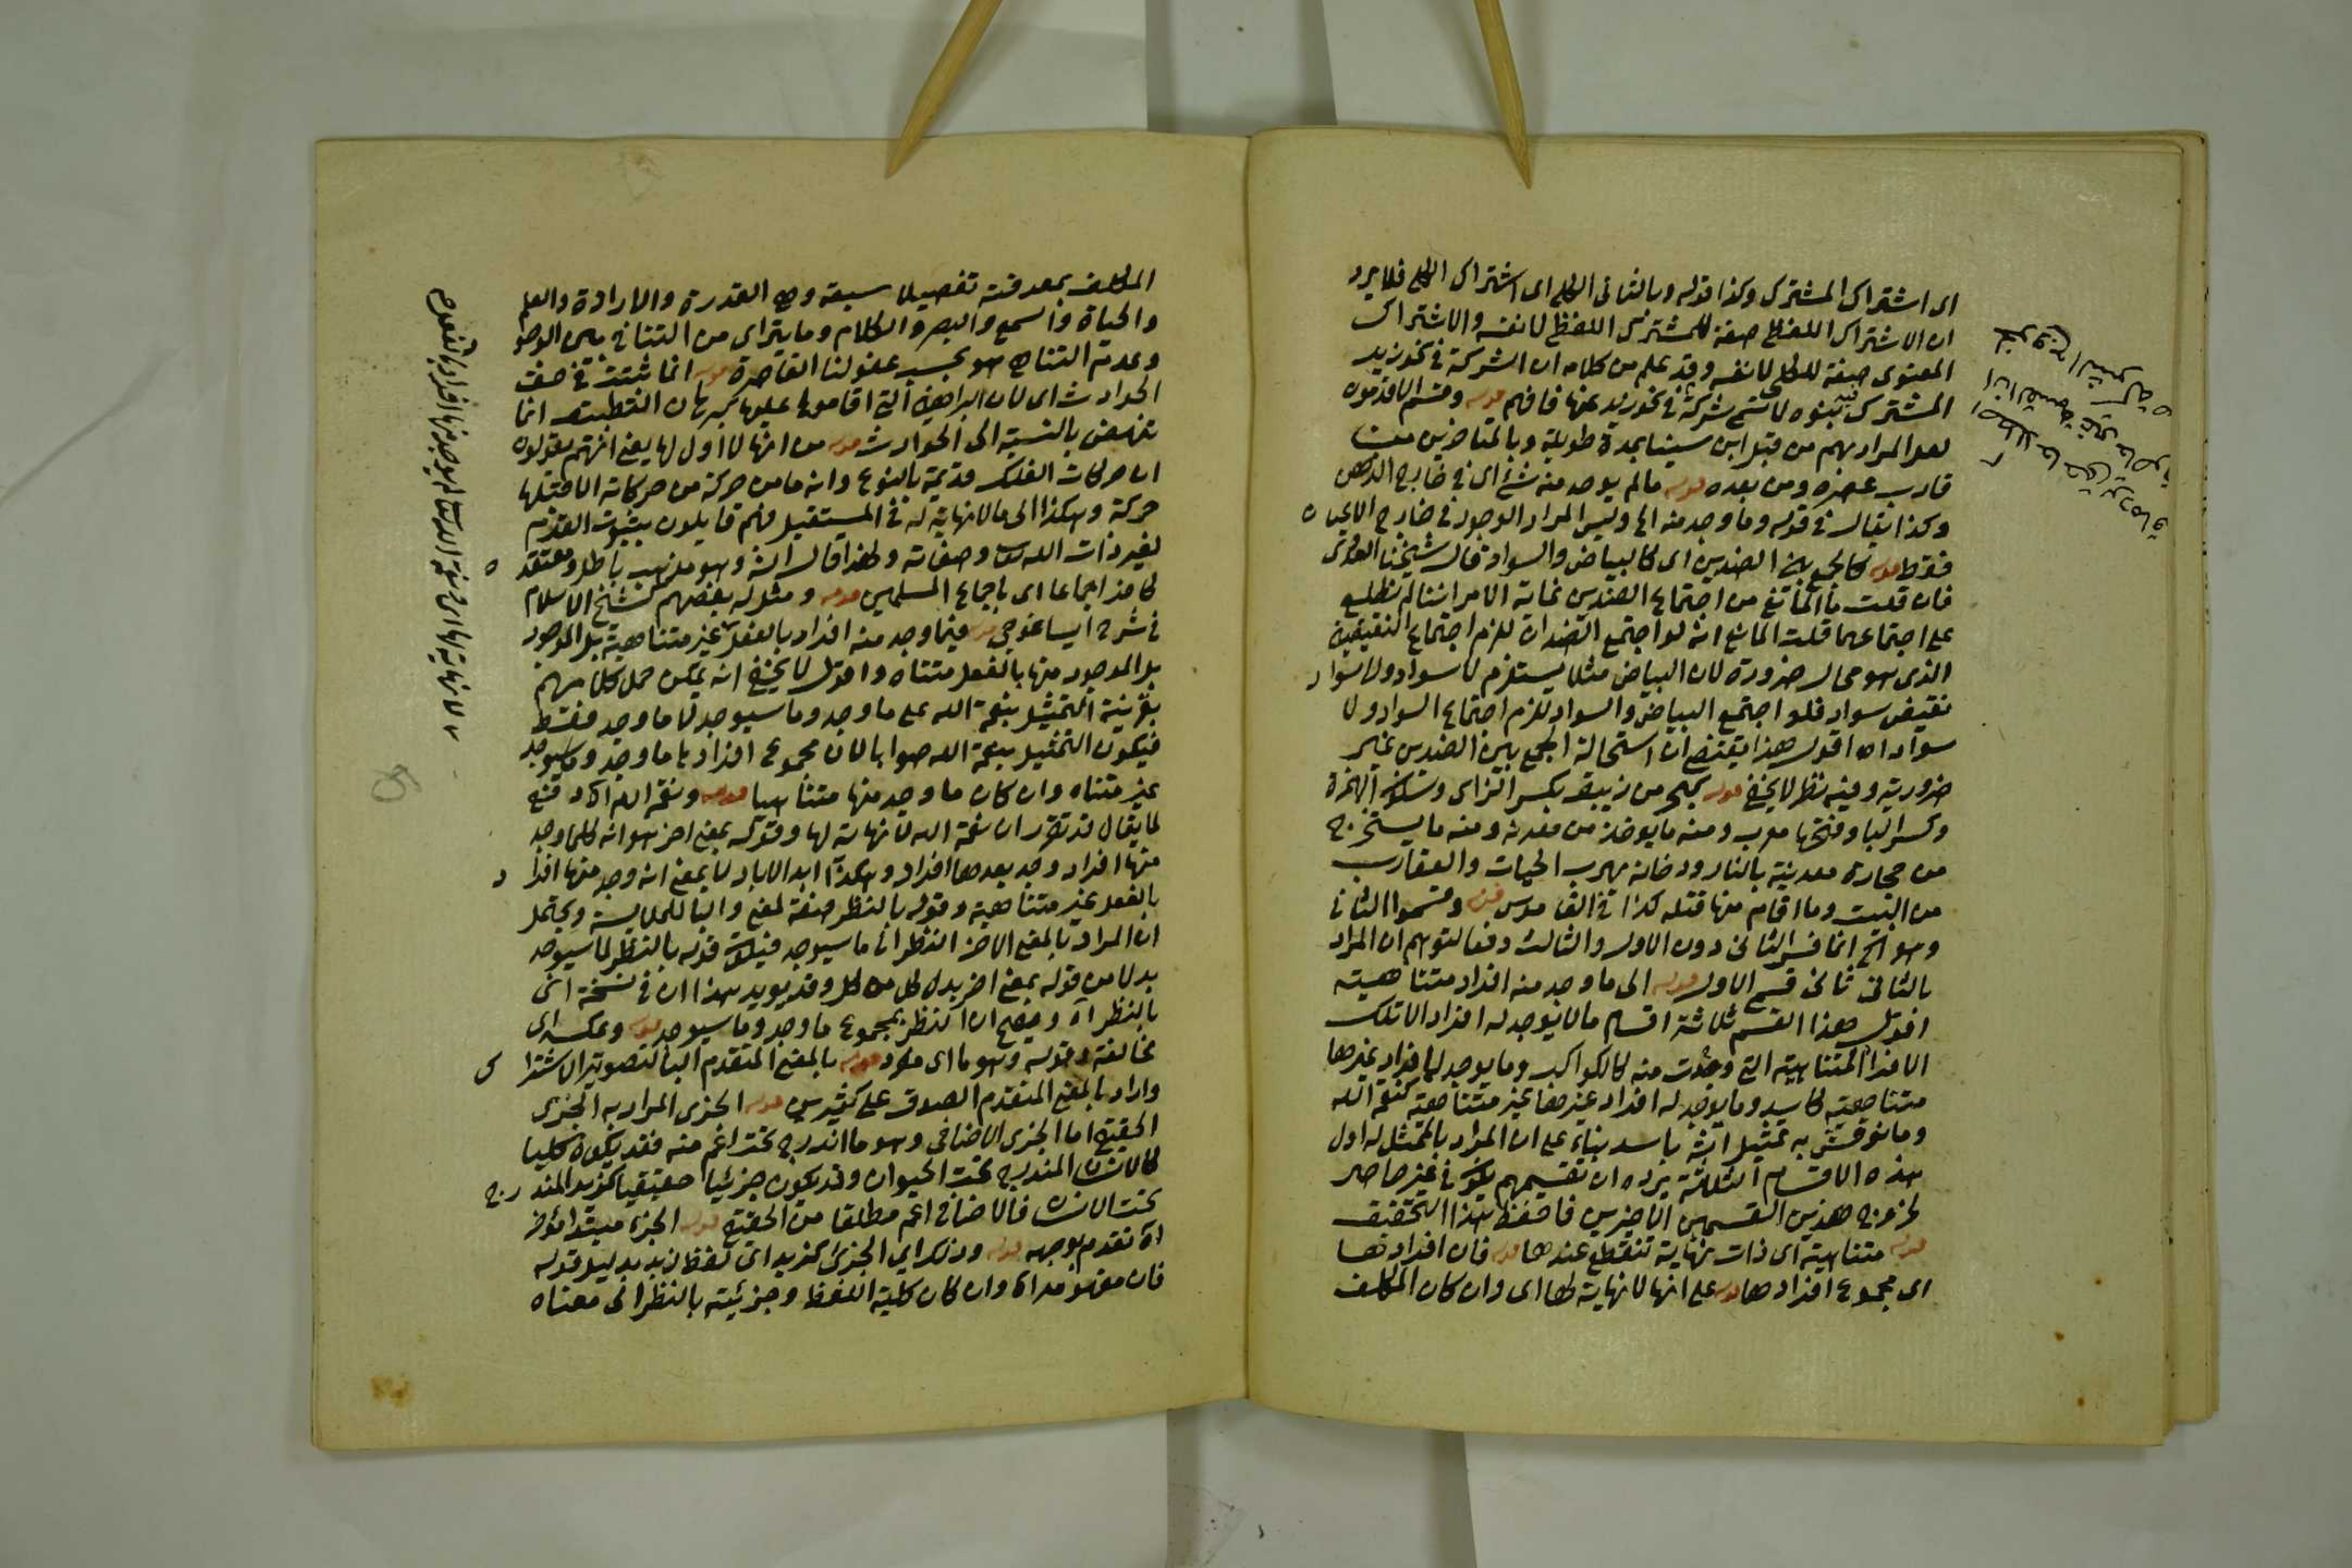 اى اشتراك المشترك وكذا قوله وبالثانى الكلى اى اشتراك الكلى فلا يرد
ان الاشتراك اللفظى صفة للمشترك اللفظى لا نفسه والاشتراك
المعنوى صفة للكلى لا نفسه وقد علم من كلامه ان الشركة فى نحو زيد
المشترك بين بنوه لا تسمى شركة فى نحو زيد عنها فافهم قوله وقسم الاقدمون
لعل المراد بهم من قبل ابن سينا بمدة طويلة وبالمتأخرين من
قارب عصره ومن بعده قوله مالم يوجد منه شئ اى فى خارج الذهن
وكذا يقال فى قوله وما وجد منه الخ وليس المراد الوجود فى خارج الاعيان
فقط قوله كالجمع بين الضدين اى كالبياض والسواد قال شيخنا العدوى
فان قلت ما المانع من اجتماع الضدين غاية الامر اننا لم نطلع
على اجتماعهما قلت المانع انه لو اجتمع الضدان للزم اجتماع النقيضين
الذى هو محال ضرورة لان البياض مثلا يستلزم لا سواد ولا سواد
نقيض سواد فلو اجتمع البياض والسواد للزم اجتماع السواد ولا
سواد اه اقول هذا يقتضى ان استحالة الجمع بين الضدين غير
ضرورية وفيه نظر لا يخفى قوله بحر من زيبق بكسر الزاى وسكون الهمزة
وكسر البا وفتحها معرب ومنه ما يوخذ من معدنه ومنه ما يستخرج
من حجارة معدنية بالنار ودخانه يهرب الحيات والعقارب
من البيت وما اقام منها قتله كذا فى القاموس قوله وقسموا الثانى
وهو الخ انما فسر الثانى دون الاول والثالث دفعا لتوهم ان المراد
بالثانى ثانى قسمى الاول قوله الى ما وجد منه افراد متناهية
اقول هذا القسم ثلاثة اقسام مالا يوجد له افراد الا تلك
الافراد المتناهية التى وجدت منه كالكواكب وما يوجد لها افراد غيرها
متناهية كاسد وما يوجد له افراد غيرها غير متناهية كنعم الله
وما نوقش به تمثيل الشه باسد بناء على ان المراد بالممثل له اول
هذه الاقسام الثلاثة يرده ان تقسيمهم يكون فى غير حاصر
لخروج هذين القسمين الاخيرين فاحفظ هذا التحقيق
قوله متناهية اى ذات نهاية تنقطع عندها قوله فان افرادها
اى مجموع افرادها قوله على انها لا نهاية لها اى وان كان المكلف
المكلف بمعرفته تفصيلا سبعة وهى القدرة والارادة والعلم
والحياة والسمع والبصر والكلام وما يتراى من التنافى بين الوجود
وعدم التناهى هو بحسب عقولنا القاصرة قوله انما ثبتت فى صف
الحوادث اى لان البراهين التى اقاموها عليها كبرهان التطبيق انما
تنهض بالنسبة الى الحوادث قوله من انها لا اول لها يعنى انهم يقولون
ان حركات الفلك قديمة بالنوع وانه ما من حركة من حركاته الا قبلها
حركة وهكذا الى مالا نهاية له فى المستقبل فهم قايلون بثبوت القدم
لغير ذات الله تعالى وصفاته ولهذا قال الشه وهو مذهب باطل ومعتقده
كافر اجماعا اى باجماع المسلمين قوله ومثل له بعضهم كشيخ الاسلام
فى شرح ايساغوجى قوله فيما وجد منه افراد بالفعل غير متناهية بل الموجود
بل الموجود منها بالفعل متناه واقول لا يخفى انه يمكن حمل كلامهم
بقرينة التمثيل بنعمة الله على ما وجد وما سيوجد لا ما وجد فقط
فيكون التمثيل بنعمة الله صوابا لان مجموع افرادها ما وجد وما سيوجد
غير متناه وان كان ما وجد منها متناهيا قوله ونعم الله اه دفع
لما يقال قد تقرر ان نعمة الله لا نهاية لها وقوله بمعنى اخر هو انه كلما وجد
منها افراد وجد بعدها افراد وهكذا ابد الاباد لا بمعنى انه وجد منها افراد
بالفعل غير متناهية وقوله بالنظر صفة لمعنى والبا للملابسة ويحتمل
ان المراد بالمعنى الاخر النظر الى ما سيوجد فيكون قوله بالنظر لما سيوجد
بدلا من قوله بمعنى اخر بدل كل من كل وقد يويد هذا ان فى نسخة اى
بالنظر اه ويصح ان النظر بمجموع ما وجد وما سيوجد قوله وعكسه اى
مخالفة وقوله وهو ما اى مفرد قوله بالمعنى المتقدم البا لتصوير الاشتراك
واراد بالمعنى المتقدم الصدق على كثيرين قوله الجزى المراد به الجزى
الحقيقى اما الجزى الاضافى وهو ما اندرج تحت اعم منه فقد يكون كليا
كالانسان المندرج تحت الحيوان وقد يكون جزئيا حقيقيا كزيد المندرج
تحت الانسان فالاضافى اعم مطلقا من الحقيقى قوله الجزء مبتدا مؤخر
اه تقدم توجيهه قوله وذلك اى الجزئ كزيد اى لفظ زيد بدليل قوله
فان مفهومه اه وان كان كلية اللفظ وجزئيته بالنظر الى معناه